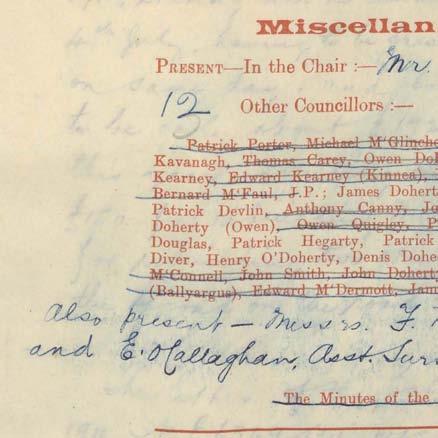 Miscellan
PRESENT—In the Chair :— Mr.
12 Other Councillors :—
Patrick Porter, Michael M'Glinche
Kavanagh, Thomas Carey, Owen Doh
Kearney, Edward Kearney (Kinnea),
Bernard M'Faul, J.P.; James Dohert
Patrick Devlin, Anthony Canny, Jo
Doherty (Owen), Owen Quigley, P
Douglas, Patrick Hegarty, Patrick
Diver, Henry O'Doherty, Denis Dohe
M'Connell, John Smith, John Dohert
(Ballyargus), Edward M'Dermott, Jam
Also present — Messrs. F.
and E. O'Callaghan, Asst. Sur
The Minutes of the